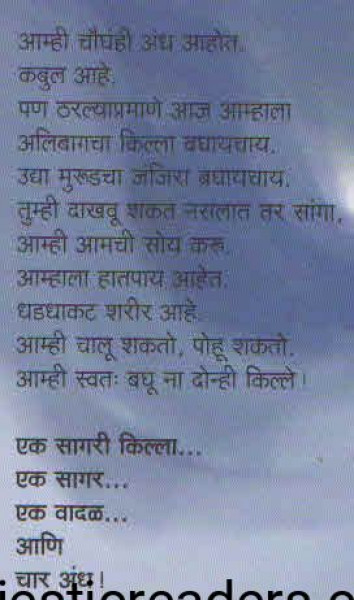 आम्ही चौघंही अंध आहोत.
कबुल आहे.
पण ठरल्याप्रमाणे आज आम्हाला
अलिबागचा किल्ला बघायचाय.
उद्या मुरूडचा जंजिरा बघायचाय.
तुम्ही दाखवू शकत नसलात तर सांगा,
आम्ही आमची सोय करू.
आम्हाला हातपाय आहेत.
धडधाकट शरीर आहे.
आम्ही चालू शकतो, पोहू शकतो.
आम्ही स्वतः बघू ना दोन्ही किल्ले!
एक सागरी किल्ला...
एक सागर...
एक वादळ...
आणि
चार अंध!